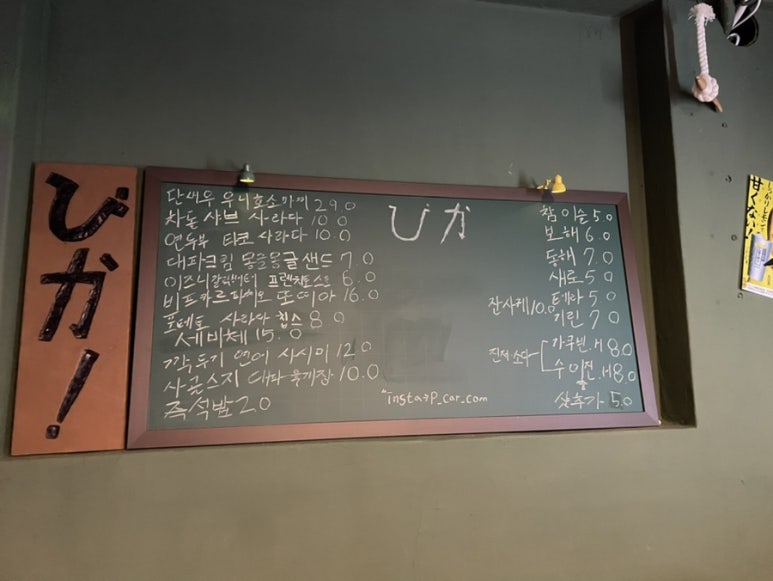 びか!
단새우 우니호소마끼 29.0
차돌 샤브 사라다 10.0
연두부 타코 사라다 10.0
대파크림 몽글몽글샌드 7.0
이즈니 갈릭버터 프렌치토스트 6.0
비프 카르파치오 또띠아 16.0
포테토 사라다 칩스 8.0
세비체 15.0
깍두기 연어 사시미 12.0
사골스지 대파 육개장 10.0
즉석밥 2.0
びか
"insta→p_car_com
참이슬 5.0
보해 6.0
동해 7.0
새로 5.0
테라 5.0
잔사케 10.0
기린 7.0
진저 소다
가쿠빈.H 8.0
수 이진.H 8.0
샷추가 5.0
甘くない